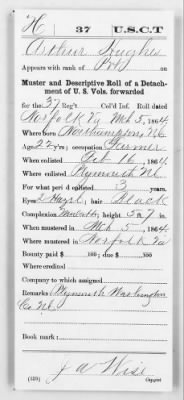 H 37 U.S.C.T
Arthur Hughes
Appears with rank of Pvt
Muster and Descriptive Roll of a Detach-
ment of U. S. Vols. forwarded
for the 37 Reg't. Col'd Inf. Roll dated
Norfolk Va Mch 5, 1864
Where born Northampton, NC
Age 22 y'rs; occupation Farmer
When enlisted Oct 16, 1864
Where enlisted Plymouth NC
For what period enlisted 3 years.
Eyes Hazel; hair Black
Complexion; height 5 ft. 7 in.
When mustered in Mch 5, 1864
Where mustered in Norfolk Va
Bounty paid $ 100; due $ 100
Where credited
Company to which assigned
Remarks Plymouth Washington
Co NC.
Book mark:
J W Wise
(339) Copyist